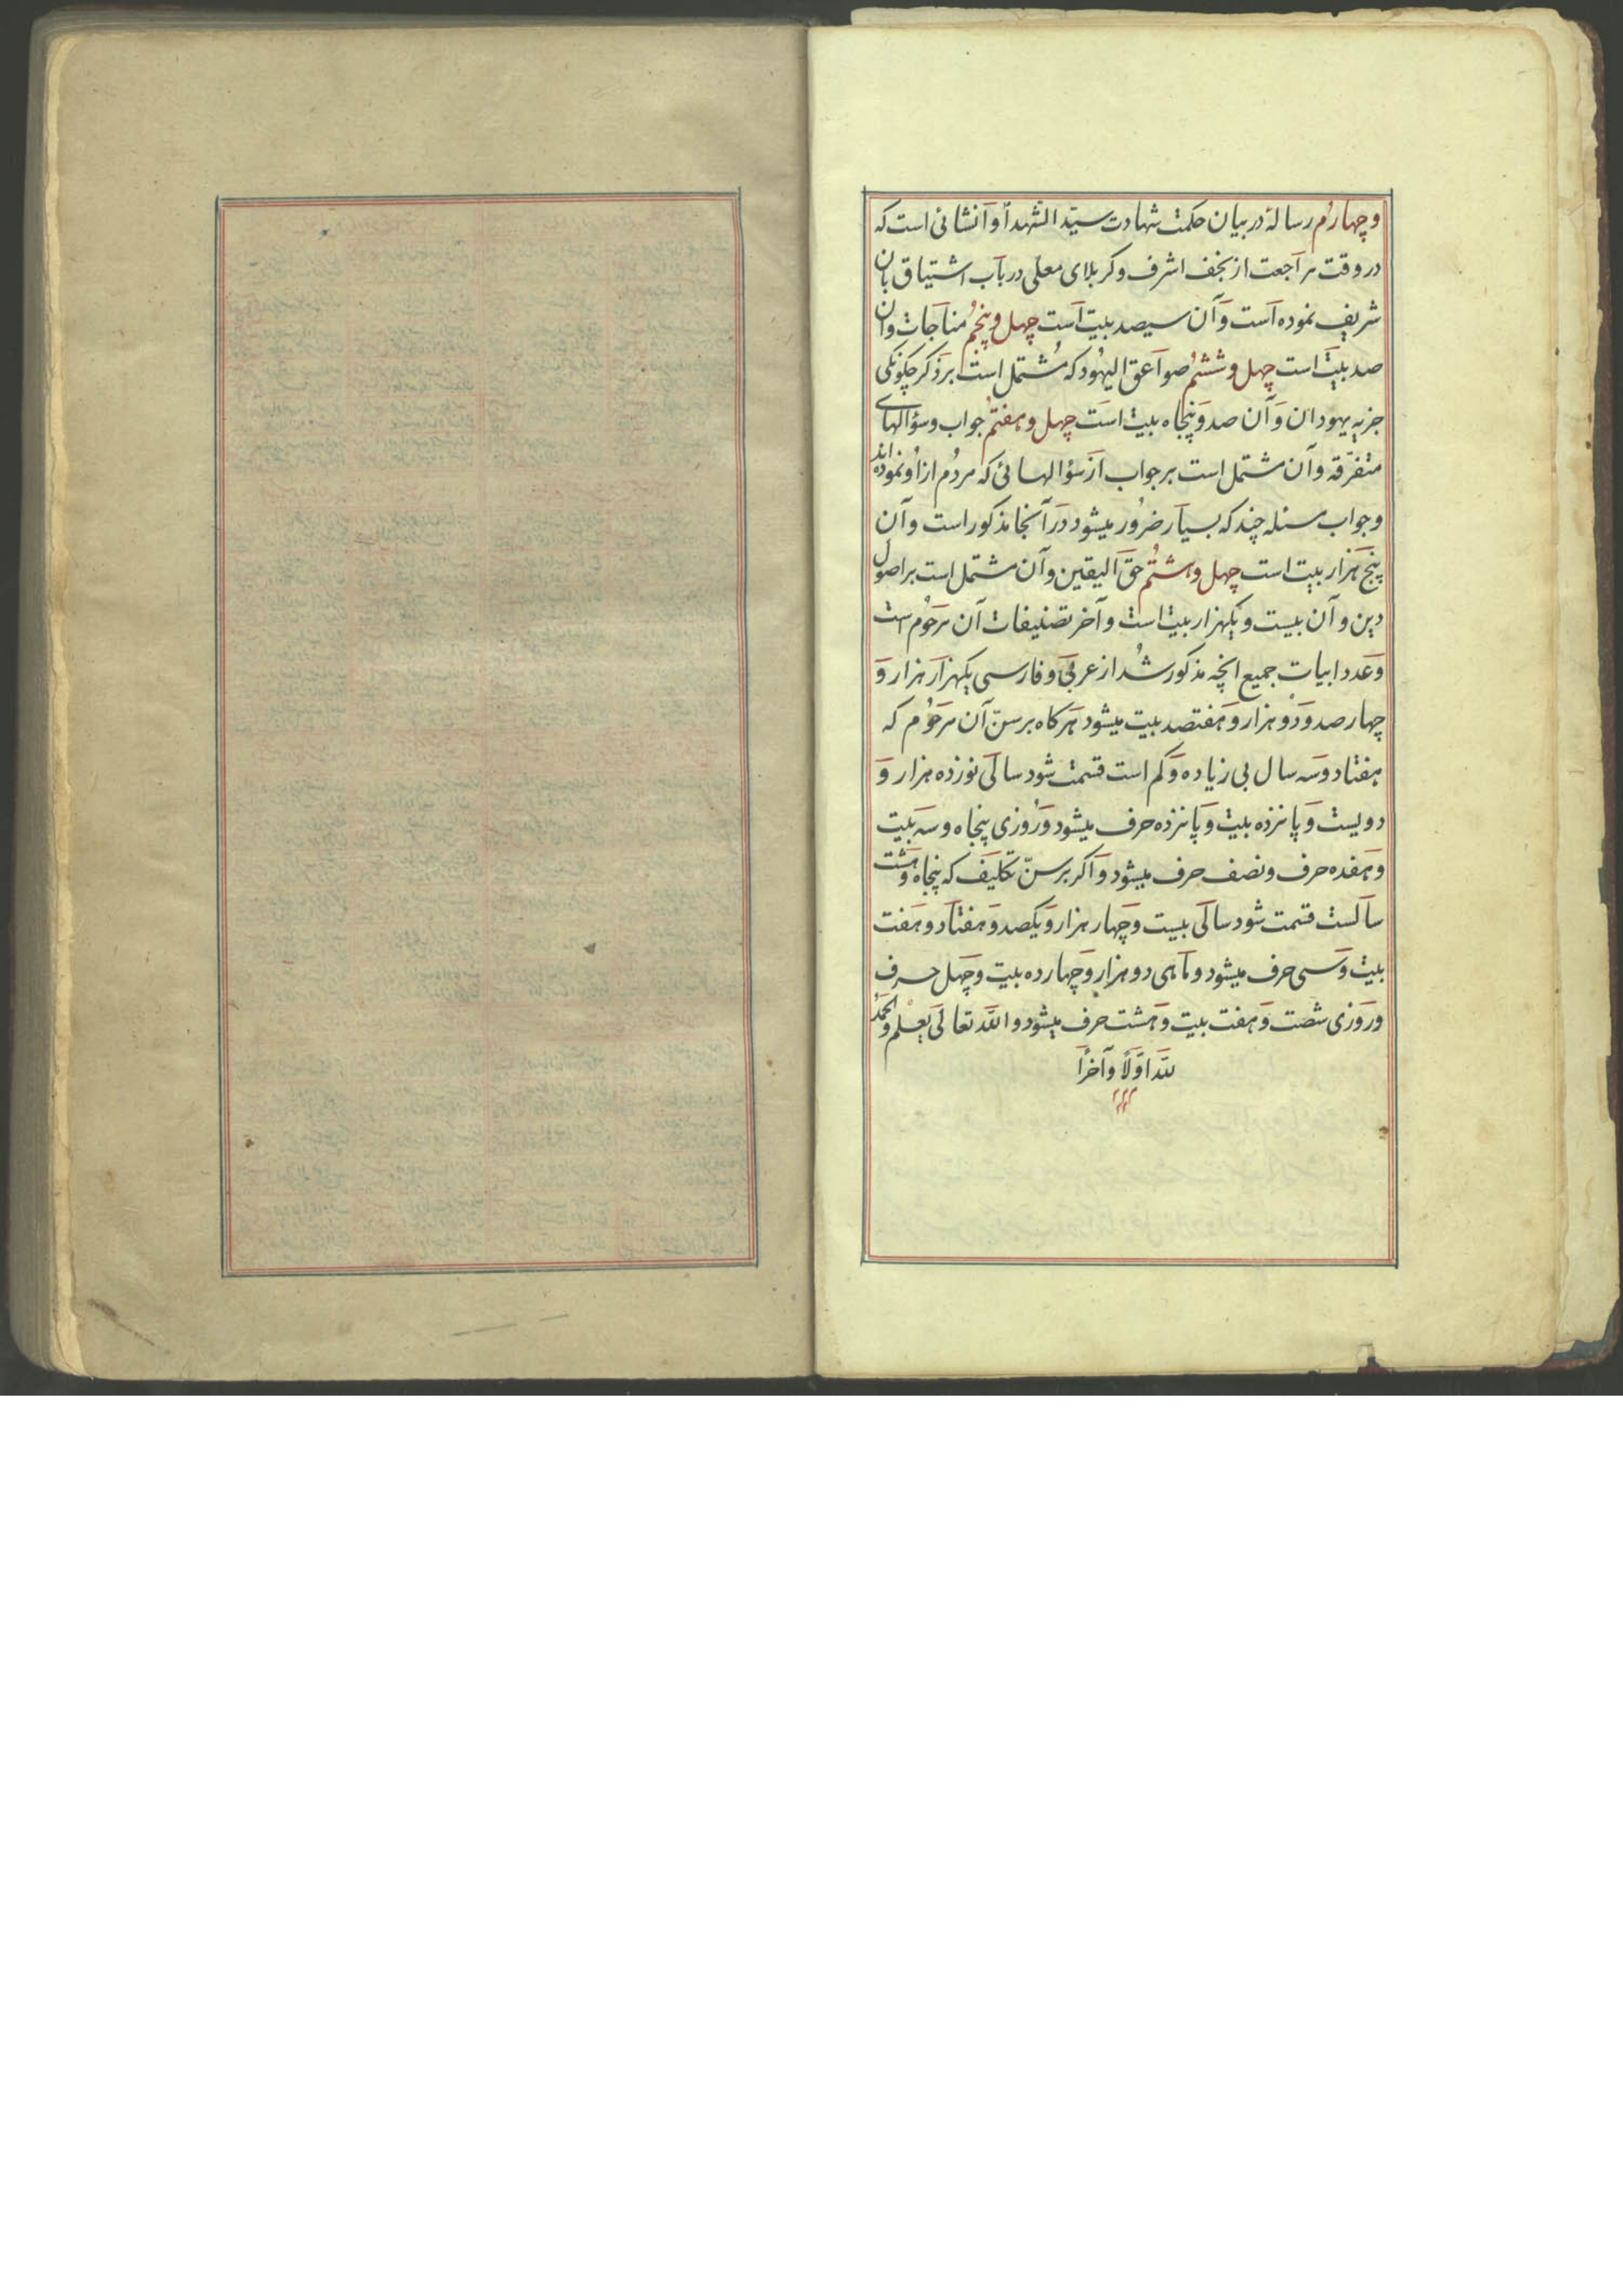 وچهارم رسالهٔ در بیان حکمت شهادت سیّد الشّهدا وآنشائی است که
در وقت مراجعت از نجف اشرف و کربلای معلّی در باب اشتیاق بان
شریف نموده است وآن سیصد بیت است چهل وپنجم مناجات وان
صد بیت است چهل وششم صواعق الیهود که مشتمل است بر ذکر چکونکی
جزیه یهودان وآن صد وپنجاه بیت است چهل وهفتم جواب وسؤالهای
متفرّقه وآن مشتمل است بر جواب از سؤالهائی که مردم از او نموده اند
وجواب مسئله چند که بسیار ضرور میشود در آنجا مذکور است وآن
پنج هزار بیت است چهل وهشتم حق الیقین وآن مشتمل است بر اصول
دین وآن بیست ویکهزار بیت است وآخر تصنیفات آن مرحوم است
وعدد ابیات جمیع انچه مذکور شد از عربی وفارسی یکهزار هزار و
چهار صد ودو هزار وهفتصد بیت میشود هرکاه بر سنّ آن مرحوم که
هفتاد وسه سال بی زیاده وکم است قسمت شود سالی نوزده هزار و
دویست وپانزده بیت وپانزده حرف میشود وروزی پنجاه وسه بیت
وهفده حرف ونصف حرف میشود واکر بر سنّ تکلیف که پنجاه وهشت
سالست قسمت شود سالی بیست وچهار هزار ویکصد وهفتاد وهفت
بیت وسی حرف میشود وماهی دو هزار وچهارده بیت وچهل حرف
وروزی شصت وهفت بیت وهشت حرف میشود والله تعالی یعلم والحمد
لله اوّلاً وآخراً